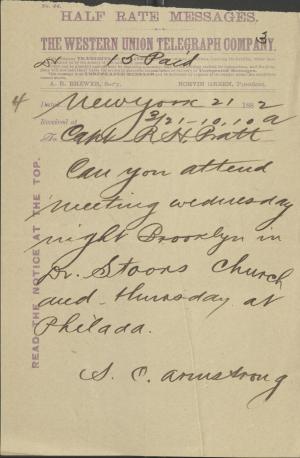 No. 44.
HALF RATE MESSAGES.
THE WESTERN UNION TELEGRAPH COMPANY.
3
Dr 15 Paid
A. R. BREWER, Sec'y. NORVIN GREEN, President.
4 Dated New York 21 1882
Received at 3/21-10.10 a
To Capt R H Pratt
Can you attend
meeting wednesday
night Brooklyn in
Dr. Stoors Church
and thursday at
Philada.
S. C. Armstrong
READ THE NOTICE AT THE TOP.